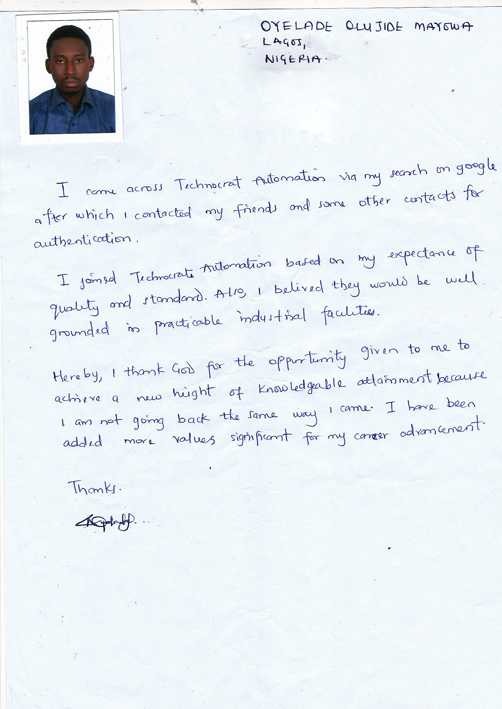 OYELADE OLUJIDE MAYOWA
LAGOS,
NIGERIA.
I came across Technocrat Automation via my search on google
after which I contacted my friends and some other contacts for
authentication.
I joined Technocrate Automation based on my expectance of
quality and standard. Also, I belived they would be well
grounded in practicable industrial facilities.
Hereby, I thank God for the opportunity given to me to
achieve a new height of knowledgeable attainment because
I am not going back the same way I came. I have been
added more values significant for my career advancement.
Thanks.